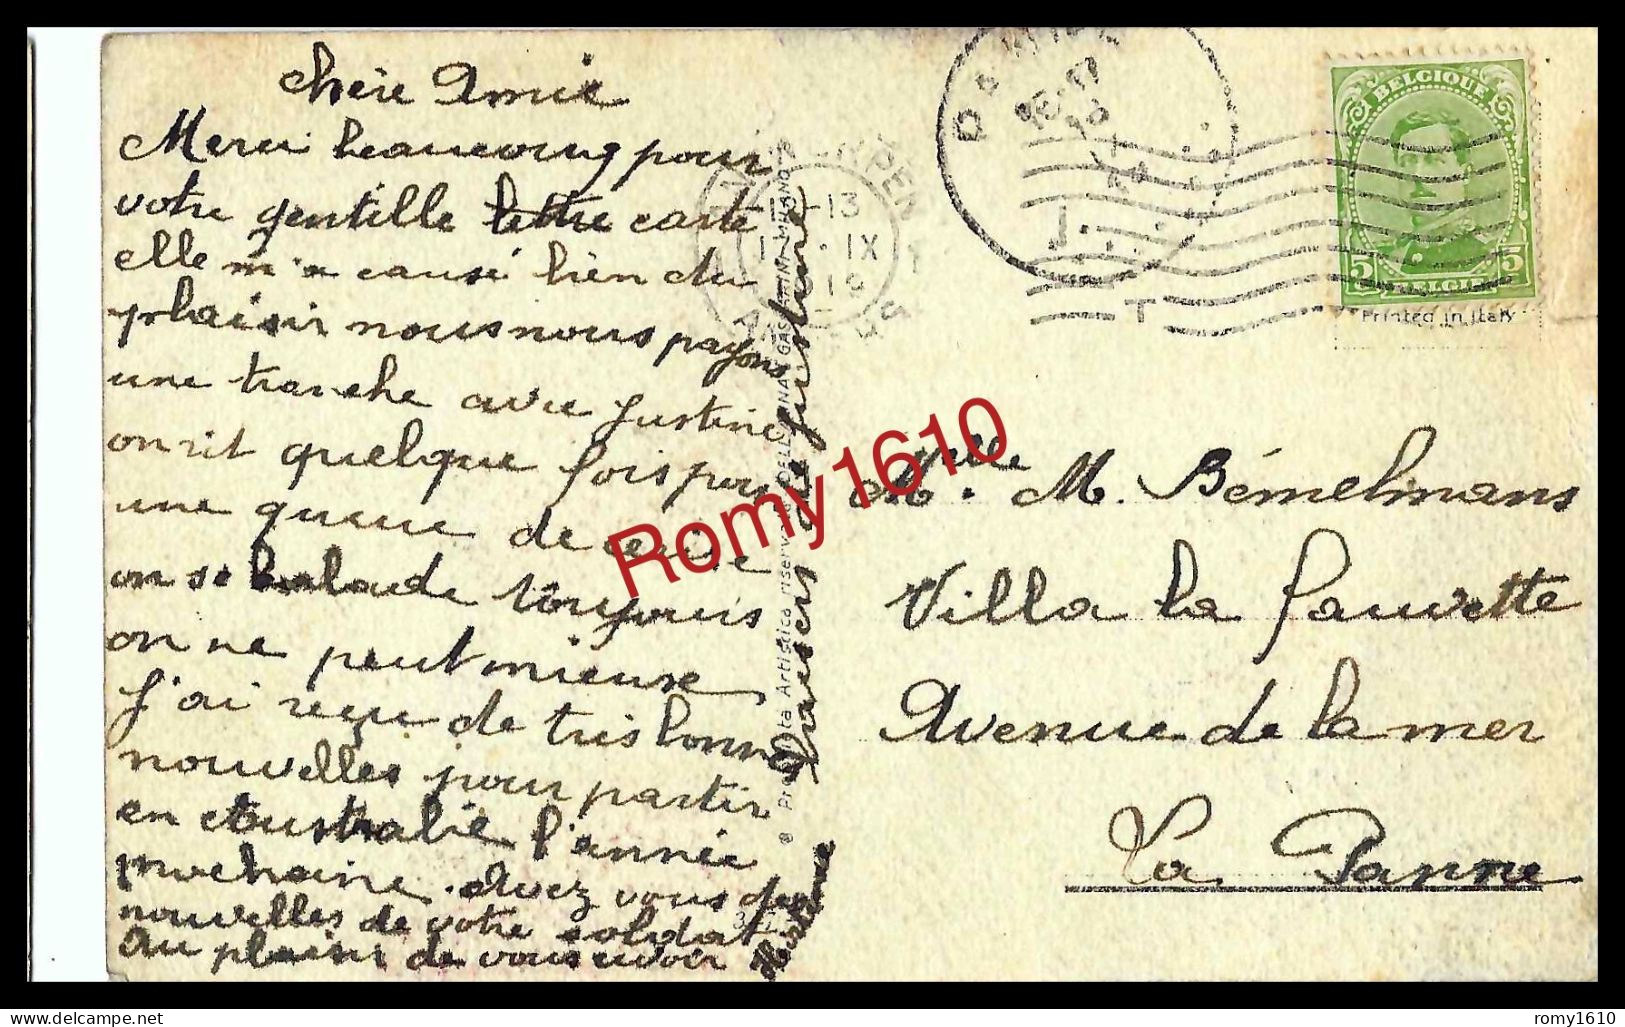 chère Amie
Merci beaucoup pour
votre gentille lettre carte
elle m'a causé bien du
plaisir nous nous payons
une tranche avec Justine
on rit quelque fois pour
une queue de cerise
on se balade toujours
on ne peut mieuse
J'ai reçu de tres bonnes
nouvelles pour partir
en Australie l'année
prochaine. Avez vous des
nouvelles de votre soldat
au plaisir de vous revoir
Baisers de Justine
12-13
IX
Printed in Italy
BELGIQUE
5 5
BELGIË
T
Mlle. M. Bémelmans
Villa la Fauvette
Avenue de la mer
La Panne
Romy1610
delcampe.net
romy1610